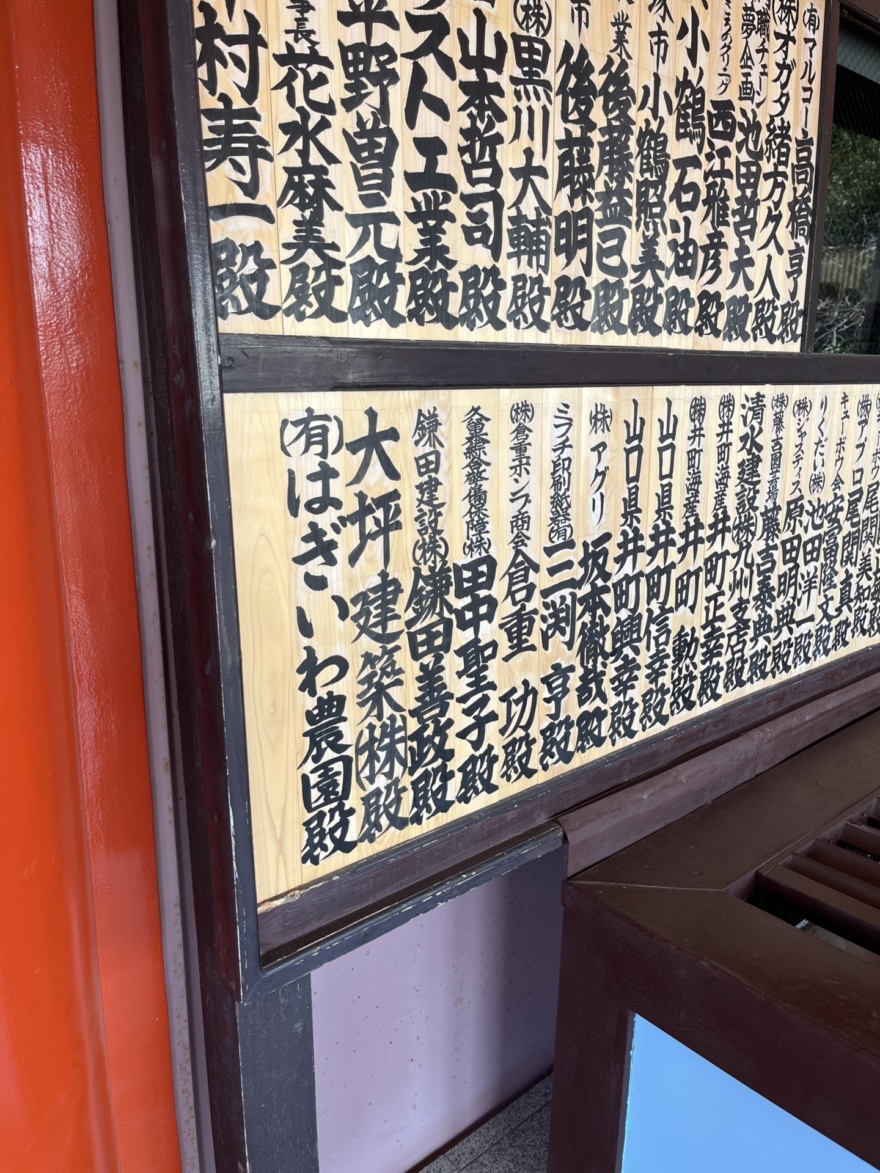 (有)マルコー 高橋亨殿
(株)オガタ 緒方久人殿
夢企画 池田哲夫殿
西江雅彦殿
小鶴石油殿
市 小鶴照美殿
業 後藤益巳殿
市 後藤明殿
(株)黒川大輔殿
山本哲司殿
スト工業殿
平野曽元殿
事長 花水麻美殿
村寿一殿
(株)アプロ 尾関真殿
キューボウ会 安冨隆文殿
りくだい(株) 池田洋一殿
(株)ジャスティス 原田明興殿
藤吉泰典殿
清水建設(株)九州支店殿
(株)井町海産 井町正幸殿
(株)井町海産 井町 勳殿
山口県 井町信幸殿
山口県 井町興幸殿
(株)アグリ 坂本徹哉殿
ミフチ印刷紙業(有) 三渕 亨殿
(株)倉重ポンプ商会 倉重 功殿
久留米綜合警備保障(株) 田中聖子殿
鎌田建設(株) 鎌田善政殿
大坪建築(株)殿
(有)はぎいわ農園殿